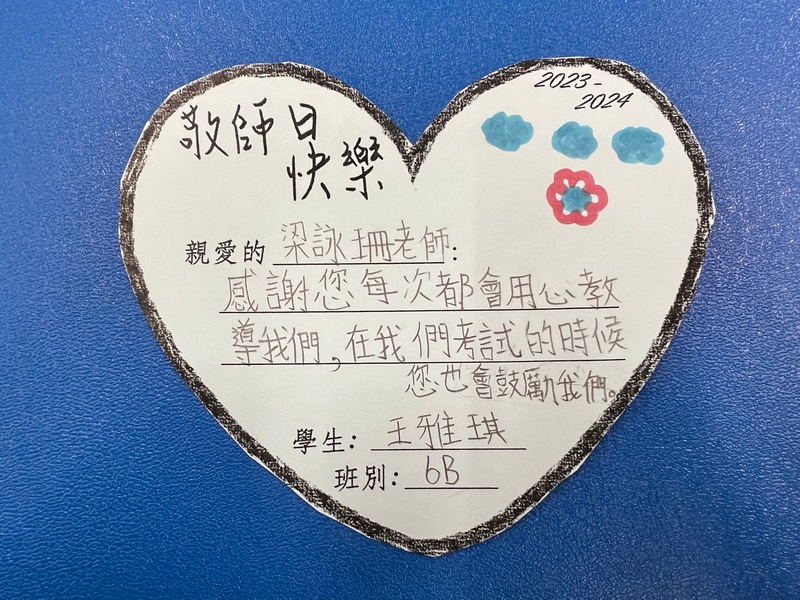 2023-
2024
敬師日
快樂
親愛的 梁詠珊老師:
感謝您每次都會用心教
導我們,在我們考試的時候
您也會鼓勵我們。
學生: 王雅琪
班別: 6B